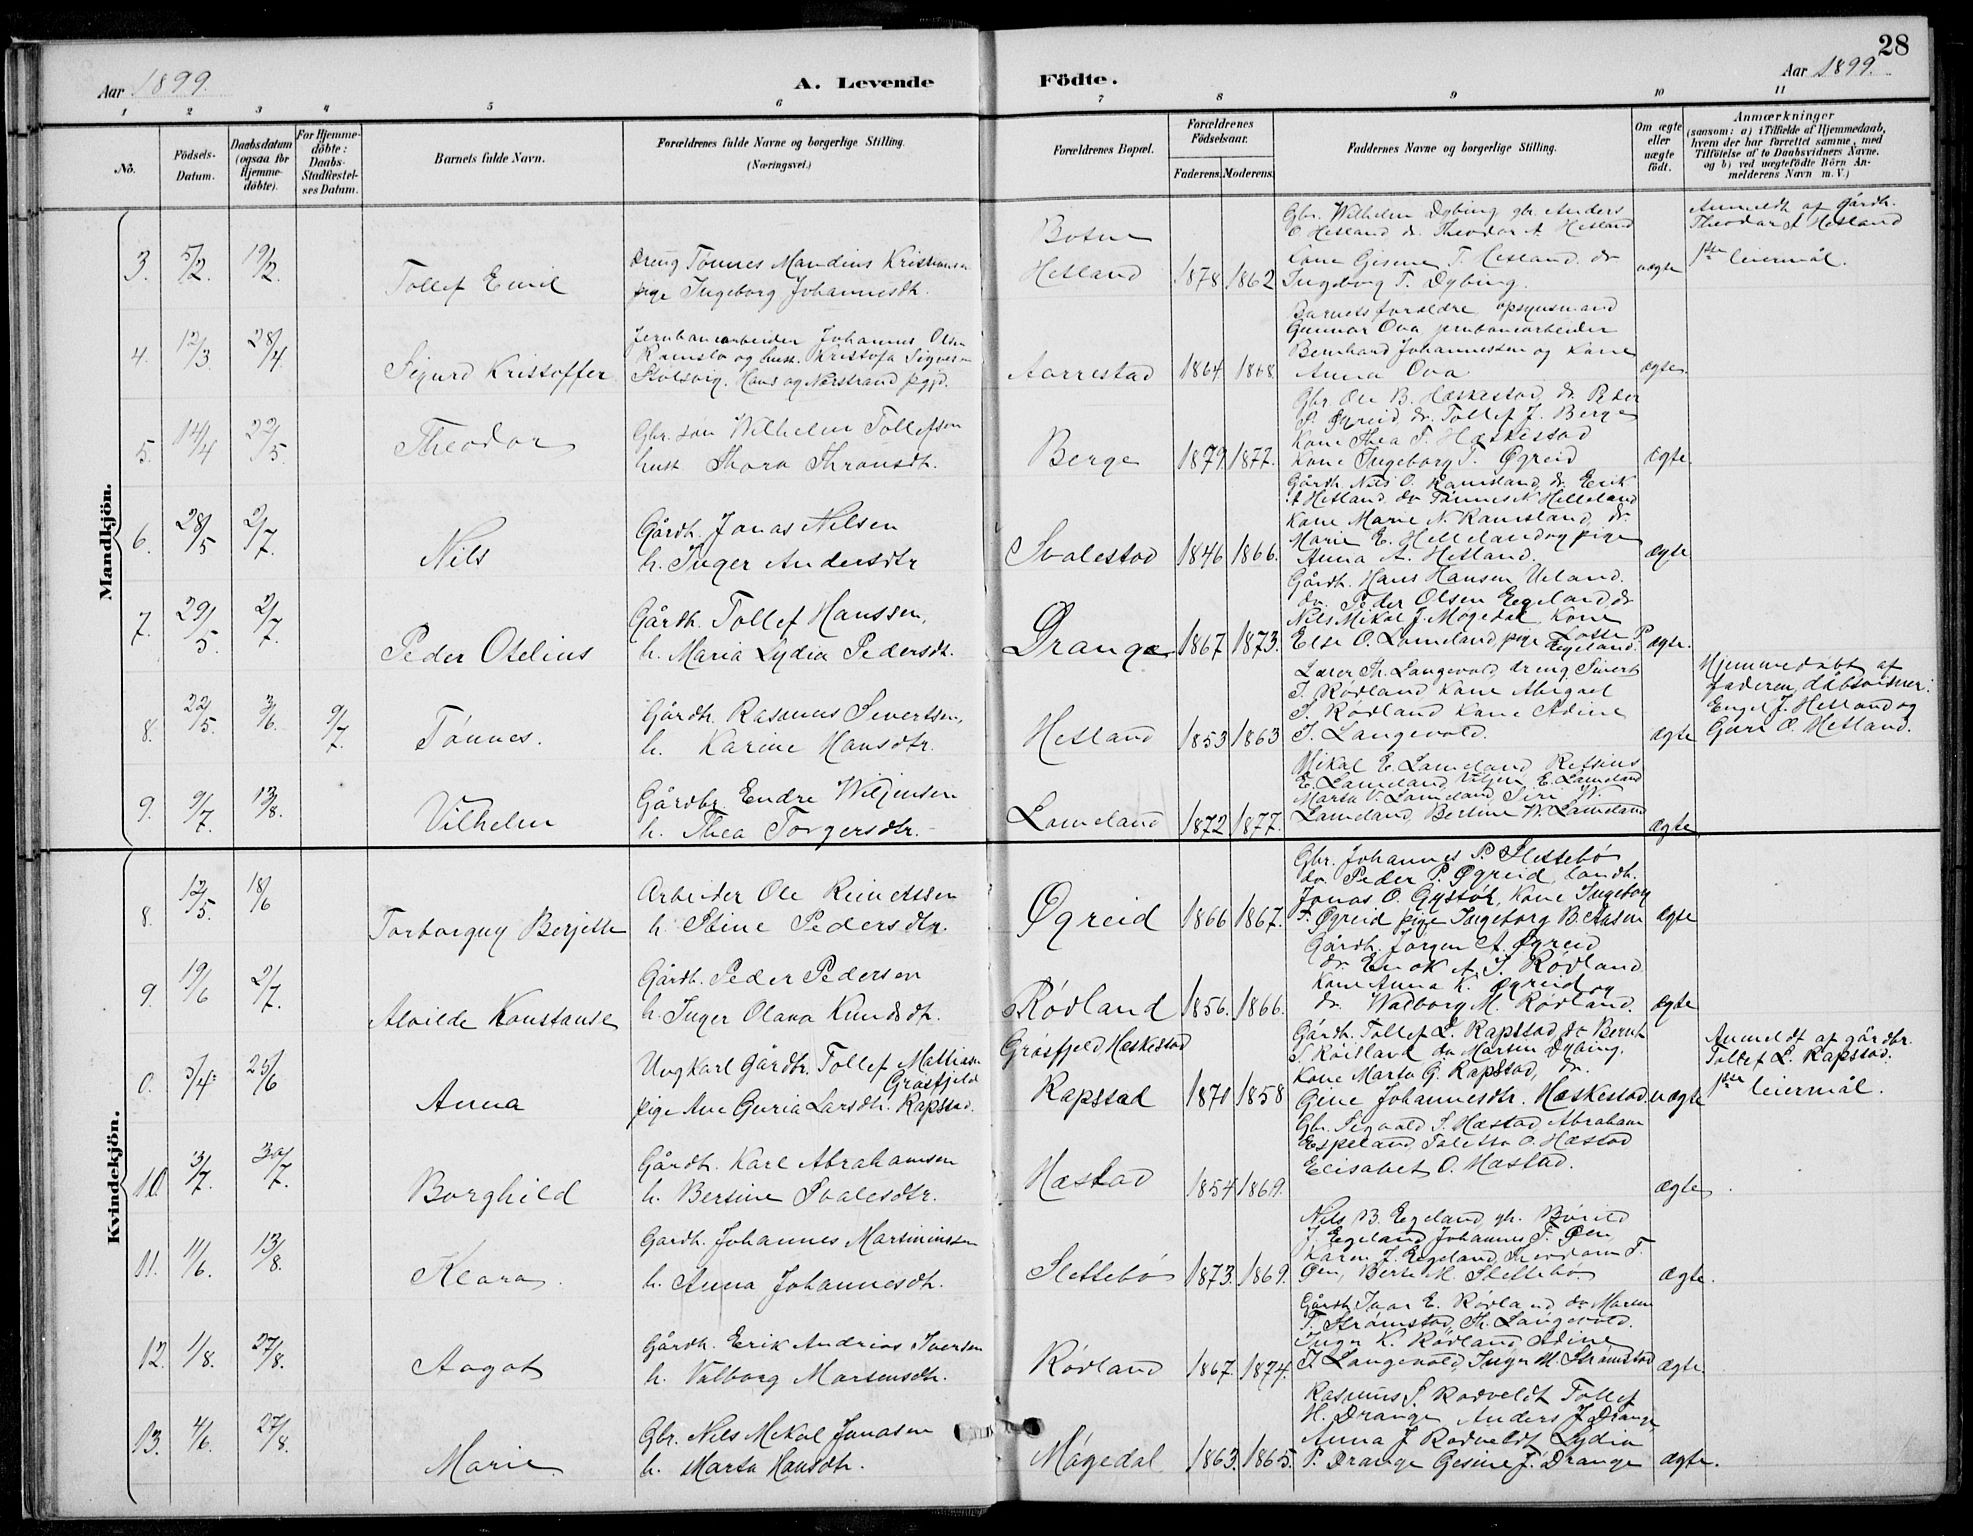 28
Aar 1899.
A. Levende Födte.
Aar 1899.
1 2 3 4 5 6 7 8 9 10 11
No.
Födsels-Datum.
Daabsdatum (ogsaa for Hjemme-döbte).
For Hjemme-döbte: Daabs-Stadfæstel-ses Datum.
Barnets fulde Navn.
Forældrenes fulde Navne og borgerlige Stilling. (Næringsvei.)
Forældrenes Bopæl.
Forældrenes Födselsaar.
Faderens. Moderens.
Faddernes Navne og borgerlige Stilling.
Om ægte eller uægte födt.
Anmærkninger
(saasom: a) i Tilfælde af Hjemmedaab,
hvem der har forrettet samme, med
Tilföielse af to Daabsvidners Navne.
og b) ved uægtefödte Börn An-
melderens Navn m. V.)
Mandkjön.
3. 5/2. 19/2. Tollef Emil
Dreng Tønnes Mandius
pige Ingeborg Johannesdtr.
Hetland 1878 1862
Gbr. Wilhelm Dybing gbr. Anders
O Hetland dr. Theodor A. Hetland
Kone Gesine T. Hetland. dr
Ingeborg T. Dybing.
uægte
Anmeldt af Gårdbr.
Theodor A Hetland
1ste leiermål.
4. 12/3. 28/4. Sigurd Kristoffer
Jernbanearbeider Johannes Olsen
Ramslo og hust. Kristofa
Aarrestad 1864 1868
Barnets forældre opsynsmand
Gunnar Ova jernbanearbeider
Bernhard Johannessen og Kone
Anna Ova
ægte
5. 14/4 22/5. Theodor
Gbr. søn Wilhelm Tollefsen
hust. Thora
Berge 1879 1877.
Gbr. Ole B. Hæskestad, dr. Peter
P. Øgreid dr. Tollef J. Berge
Kone Thea T. Hæskestad
Kone Ingeborg T. Øgreid
ægte.
6. 28/5 2/7. Nils
Gårdb. Jonas Nilsen
h. Inger Andersdtr
Svalestad 1846 1866.
Gårdb. Nils O. Ramsland, dr. Erik
A Hetland dr Tønnes K Helleland
Kone Marie N. Ramsland, dr.
Marie E. Helleland og pige
Anna A. Hetland.
ægte
7. 29/5. 2/7. Peder Otelius
Gårdb. Tollef Hanssen,
h. Maria Lydia Pedersdtr.
Drange 1867 1873.
Gårdb. Hans Hansen Ueland.
dr. Peder Olsen Eegeland, dr
Nils Mikal J. Møgedal Kone
Else O. Lomeland, pige Lotte P. Eegeland.
ægte.
8. 22/5. 3/6. 9/7. Tønnes.
Gårdb. Rasmus Sivertsen,
h. Karine Hansdtr.
Hetland 1853 1863
Lærer Th. Langevold, dreng Sivert
S. Rødland Kone Abigael
S. Rødland Kone Adine
T. Langevold.
ægte
Hjemmedøbt af
faderen, dåbsvidner:
Engel J. Hetland og
Guri O. Hetland.
9. 9/7. 13/8. Vilhelm
Gårdbr Endre Wiljemsen
h. Thea Torgersdtr.
Lomeland 1872 1877.
Mikal E. Lomeland
E. Lomeland Viljem E. Lomeland
Marta V. Lomeland Siri W.
Lomeland, Bertine W. Lomeland
ægte
Kvindekjön.
8. 12/5. 18/6 Torborguy Berjette
Arbeider Ole Reinertssen
h. Stine Pedersdtr.
Øgreid 1866 1867.
Gbr. Johannes P. Slettebø
dr. Peder P. Øgreid, landh.
Jonas O. Gystøl, Kone Ingeborg
T. Øgreid pige Ingeborg B. Aasen
ægte
9. 19/6 2/7. Alvilde Konstanse
Gårdb. Peder Pedersen
h. Inger Olava Knudsdtr.
Rødland 1856. 1866.
Gårdb. Jørgen A. Øgreid
dr. Enok A. S. Rødland
Kone Anna K. Øgreid og
dr. Walborg M. Rødland.
ægte
0. 3/4 25/6 Anna
Ungkarl gårdbr. Tollef Mattiasen
Grøsfjeld
pige Ane Guria Larsdtr. Rapstad.
Grøsfjeld Hæskestad
Rapstad 1870 1858
Gårdb. Tollef L. Rapstad, dr Bernt
S. Røitland dr Martin Dybing.
Kone Marta G. Rapstad, dr.
Gine Johannesdtr. Hæskestad.
uægte
Anmeldt af gårdbr.
Tollef L. Rapstad.
1ste leiermål.
10. 3/7. 30/7. Borghild
Gårdb. Karl Abrahamsen
h. Bertine Svalesdtr.
Hæstad 1854 1869.
Gbr. Sigvald S. Hæstad Abraham
Espeland, Taletta O. Hæstad
Elisabet O. Hæstad.
ægte
11. 11/6. 13/8. Klara
Gårdb. Johannes Martiniussen
h. Anna Johannesdtr.
Slettebø 1873. 1869.
Nils B. Egeland, gb.
J Egeland Johannes T. Øen
Karen J. Eegeland, Theodora T.
Øen, Berte M. Slettebø.
ægte.
12. 1/8. 27/8. Aagot
Gårdb. Erik Andrias Iversen
h. Valborg Martensdtr.
Rødland 1867. 1874.
Gårdb Ivar E. Rødland dr Marten
T. Strømstad, Th. Langevold.
Inger K. Rødland Adine
T. Langevold Inger M. Strømstad
ægte.
13. 4/6. 27/8. Marie
Gbr. Nils Mikal Jonasen
h. Marta Hansdtr.
Møgedal 1863. 1865.
Rasmus S. Rodveldt Tollef
H. Drange Anders J Drange
Anna J Rodveldt Lydia
P. Drange Gesine J. Drange
ægte.